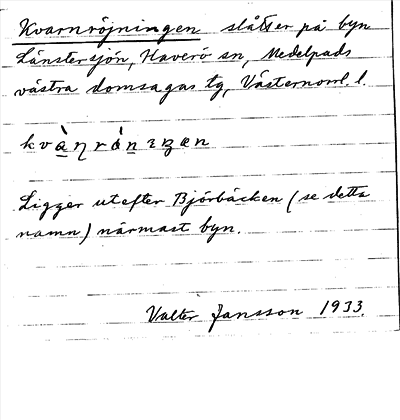 Kvarnröjningen slåtter på byn
Länstersjön, Haverö sn, Medelpads
västra domsagas tg, Västernorrl. l.
Ligger utefter Björbäcken (se detta
namn) närmast byn.
Valter Jansson 1933.